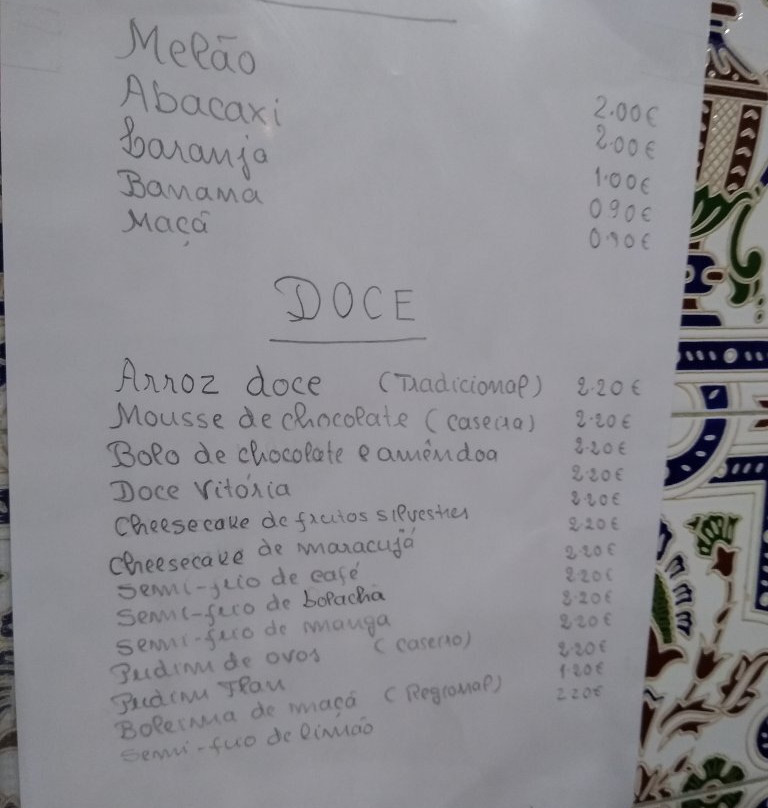 Melão 2.00€
Abacaxi 2.00€
Laranja 1.00€
Banana 0.90€
Maçã 0.90€
DOCE
Arroz doce (Tradicional) 2.20€
Mousse de chocolate (caseira) 2.20€
Bolo de chocolate e amêndoa 2.20€
Doce Vitória 2.20€
Cheesecake de frutos silvestres 2.20€
Cheesecake de maracujá 2.20€
Semi-frio de café 2.20€
Semi-frio de bolacha 2.20€
Semi-frio de manga 2.20€
Pudim de ovos (caseiro) 2.20€
Pudim Flan 2.20€
Boleima de maçã (Regional) 1.20€
Semi-frio de limão 2.20€